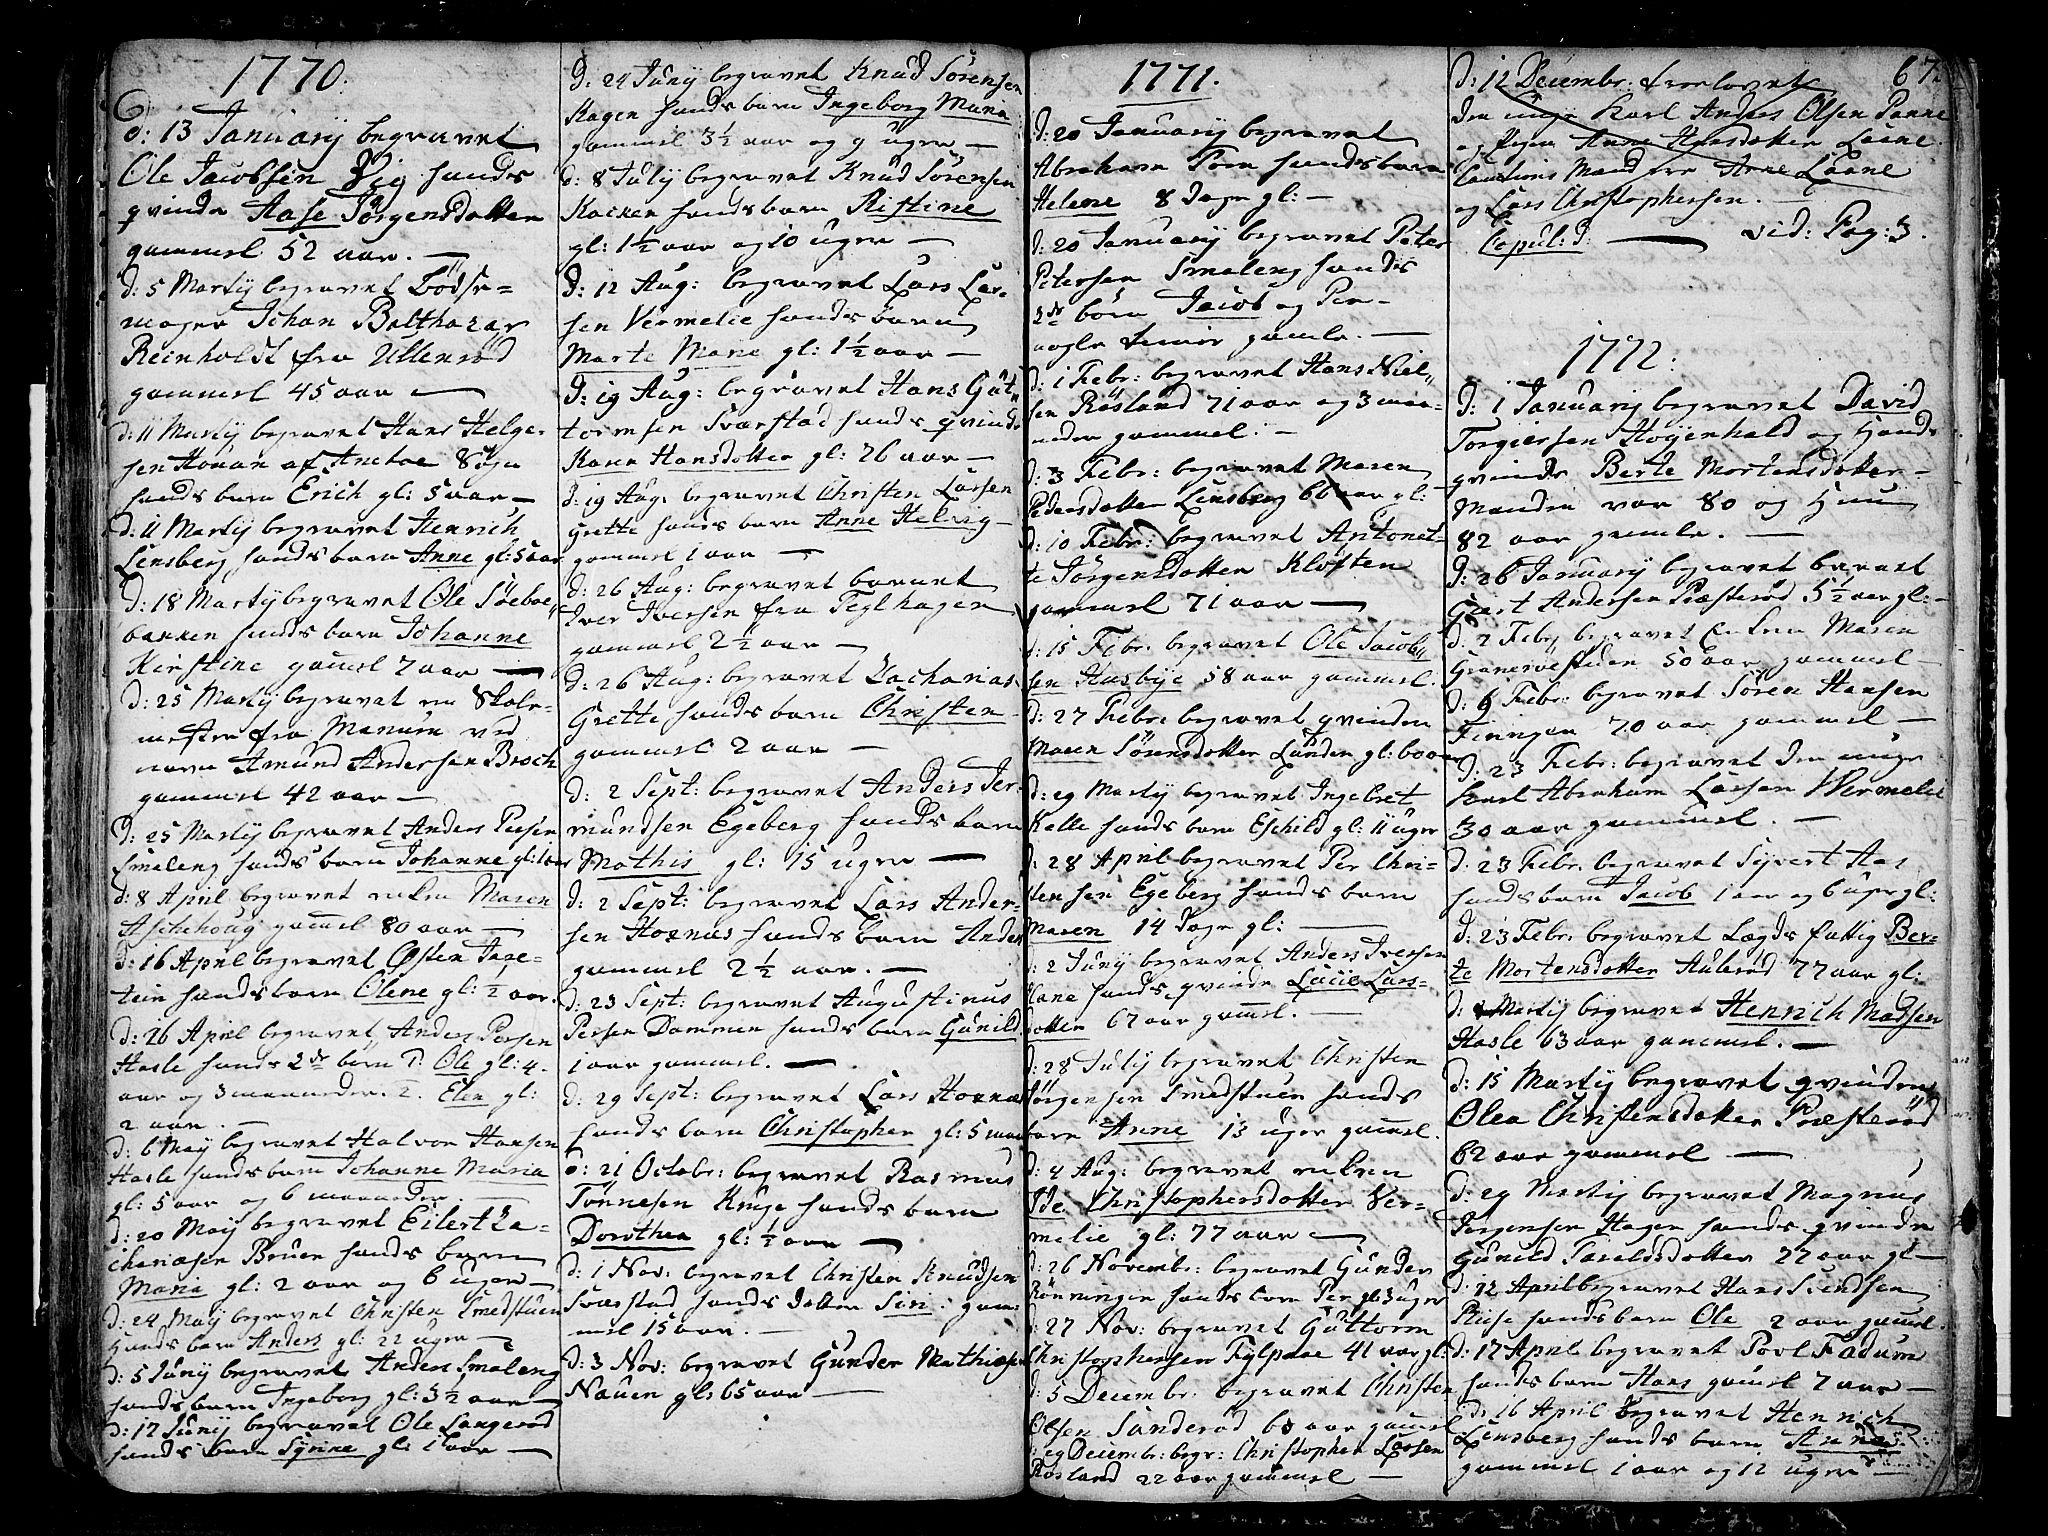 1770.
d: 13 Januarÿ begravet
Ole Jacobsen Vig hands
qvinde Aase Jörgensdotter
gammel 52 aar. —
d: 5 Martÿ begravet Bödse=
mager Johan Balthazar
Reinholdt fra Ulleröd
gammel 45 aar —
d: 11 Martÿ begravet Hans Helge-
sen Honan af Sogn
hands barn Erich gl: 5 aar —
d: 11 Martÿ begravet Henrich
Lensberg hands barn Anne gl: 5 aar
d: 18 Martÿ begravet Ole Söeboe
bakken hands barn Johanne
Kirstine gam̅el 7 aar —
d: 25 Martÿ begravet en Skole-
mester fra Manum ved
navn Amund Andersen Broch
gammel 42 aar —
d: 25 Martÿ begravet Anders Persen
Smaleng hands barn Johanne gl: 1 aar
d: 8 April begravet enken Maren
Aschehoug gam̅el 80 aar —
d: 16 April begravet Osten Tase-
tein hands barn Olene gl: ½ aar.
d: 26 April begravet Anders Persen
Hasle hands 2de börn 1. Ole gl: 4
aar og 3 maaneder. 2. Elen gl:
2 aar. —
d: 6 Maÿ begravet Halvor Hansen
Hasle hands barn Johanne Maria
gl: 5 aar og 6 maaneder. —
d: 20 Maÿ begravet Eilert Za-
chariasen Bruen hands barn
Maria gl: 2 aar og 6 uger —
d: 24 Maÿ begravet Christen Smedstuen
hands barn Anders gl: 22 uger —
d: 5 Junÿ begravet Anders Smaleng
hands barn Ingeborg gl: 3½ aar —
d: 17 Junÿ begravet Ole Langeröd
hands barn Synne gl: 1 aar —
d: 24 Junÿ begravet Knud Sörensen
Hagen hands barn Ingeborg Maria
gammel 3½ aar og 9 uger —
d: 8 Julÿ begravet Knud Sörensen
Kacken hands barn Kistine
gl: 1½ aar og 10 uger —
d: 12 Aug: begravet Lars Lar-
sen Vermelie hands barn
Marte Marie gl: 1½ aar —
d: 19 Aug: begravet Hans Gut-
tormsen Svarstad hands qvinde
Karen Hansdotter gl: 26 aar —
d: 19 Aug: begravet Christen Larsen
Grette hands barn Anne Helvig
gammel 1 aar —
d: 26 Aug: begravet barnet
Iver Iversen fra Teglhagen
gammel 2½ aar —
d: 26 Aug: begravet Zacharias
Grette hands barn Christen
gammel 2 aar —
d: 2 Sept: begravet Anders Ter-
mundsen Egeberg hands barn
Mathis gl: 15 uger —
d: 2 Sept: begravet Lars Ander-
sen Hornæs hands barn Anders
gammel 2½ aar. —
d: 23 Sept: begravet Augustinus
Persen Dammen hands barn Gunild
1 aar gammel. —
d: 29 Sept: begravet Lars Hornæs
hands barn Christopher gl: 5 maa
d: 21 Octobr: begravet Rasmus
Tönnesen Kruse hands barn
Dorothea gl: ½ aar —
d: 1 Nov: begravet Christen Knudsen
Svarstad hands dotter Siri gam-
mel 15 aar. —
d: 3 Nov: begravet Gunder Mathiasen
Nauen gl: 65 aar —
1771.
d: 20 Januarÿ begravet
Abraham Torn hands barn
Helene 8 dage gl: —
d: 20 Januarÿ begravet Peter
Petersen Smaleng hands
2de börn Jacob og Per
nogle timer gamle. —
d: 1 Febr: begravet Hans Niel-
sen Rösland 71 aar og 3 maa-
neder gammel. —
d: 3 Febr: begravet Maren
Pedersdotter Lensberg 66 aar gl:
d: 10 Febr: begravet Antonet-
te Jörgensdotter Klöften
gammel 71 aar —
d: 15 Febr. begravet Ole Jacob-
sen Husbÿe 58 aar gammel.
d: 27 Febr: begravet qvinden
Maren Sörensdotter Lunden gl: 60 aar
d: 29 Martÿ begravet Ingebret
Kalle hands barn Eschild gl: 11 uger
d: 28 April begravet Per Chri-
stensen Egeberg hands barn
Maren 14 dage gl: —
d: 2 Junÿ begravet Anders Iversen
Lane hands qvinde Lucie Lars-
dotter 67 aar gam̅el. —
d: 28 Julÿ begravet Christen
Jörgensen Smedstuen hands
barn Anne 13 uger gam̅el.
d: 4 Aug: begravet enken
Ide Christophersdotter Ver-
melie gl: 77 aar —
d: 26 Novembr: begravet Gunder
Rönningen hands barn Per gl: 3 uger
d: 27 Nov: begravet Guttorm
Christophersen Fylpaae 41 aar gl:
d: 5 Decembr: begravet Christen
Olsen Sanderöd 60 aar gam̅el
d: 29 Decembr: begr: Christopher Larsen
Rösland 22 aar gammel —
67.
d: 12 Decembr: trolovet
den unge Karl Anders Olsen Panne
og Pigen Anne Hansdotter Laane.
Cautions Mænd ere Arne Laane
og Lars Christophersen. —
Copul: d: — vid: Pag: 3.
1772.
d: 1 Januarÿ begravet David
Torgiersen Höyenhald og hands
qvinde Berte Mortensdotter —
Manden var 80 og hun
82 aar gamle. —
d: 26 Januarÿ begravet barnet
Giert Andersen Præsteröd 5½ aar gl:
d: 2 Febr: begravet Enken Maren
Graneröestuen 50 aar gammel —
d: 9 Febr: begravet Sören Hansen
Finngan 70 aar gammel —
d: 23 Febr: begravet den unge
Karl Abraham Larsen Vermelie
30 aar gammel. —
d: 23 Febr. begravet Syvert Aas
hands barn Jacob 1 aar og 6 uger gl:
d: 23 Febr. begravet Lægds fattig Ber-
te Mortensdotter Auleröd 77 aar gl:
d: Martÿ begravet Henrich Madsen
Hasle 63 aar gammel. —
d: 15 Martÿ begravet qvinden
Olea Christensdotter Præsteröd
62 aar gammel —
d: 29 Martÿ begravet Magnus
Jörgensen Hagen hands qvinde
Gunild Taraldsdotter 77 aar gl —
d: 12 April begravet Hans Svendsen
Riise hands barn Ole 2 aar gam̅el.
d: 17 April begravet Povl Fadum
hands barn Hans gam̅el 7 aar —
d: 16 April begravet Henrich
Lensberg hands barn Anne
gammel 1 aar og 12 uger —